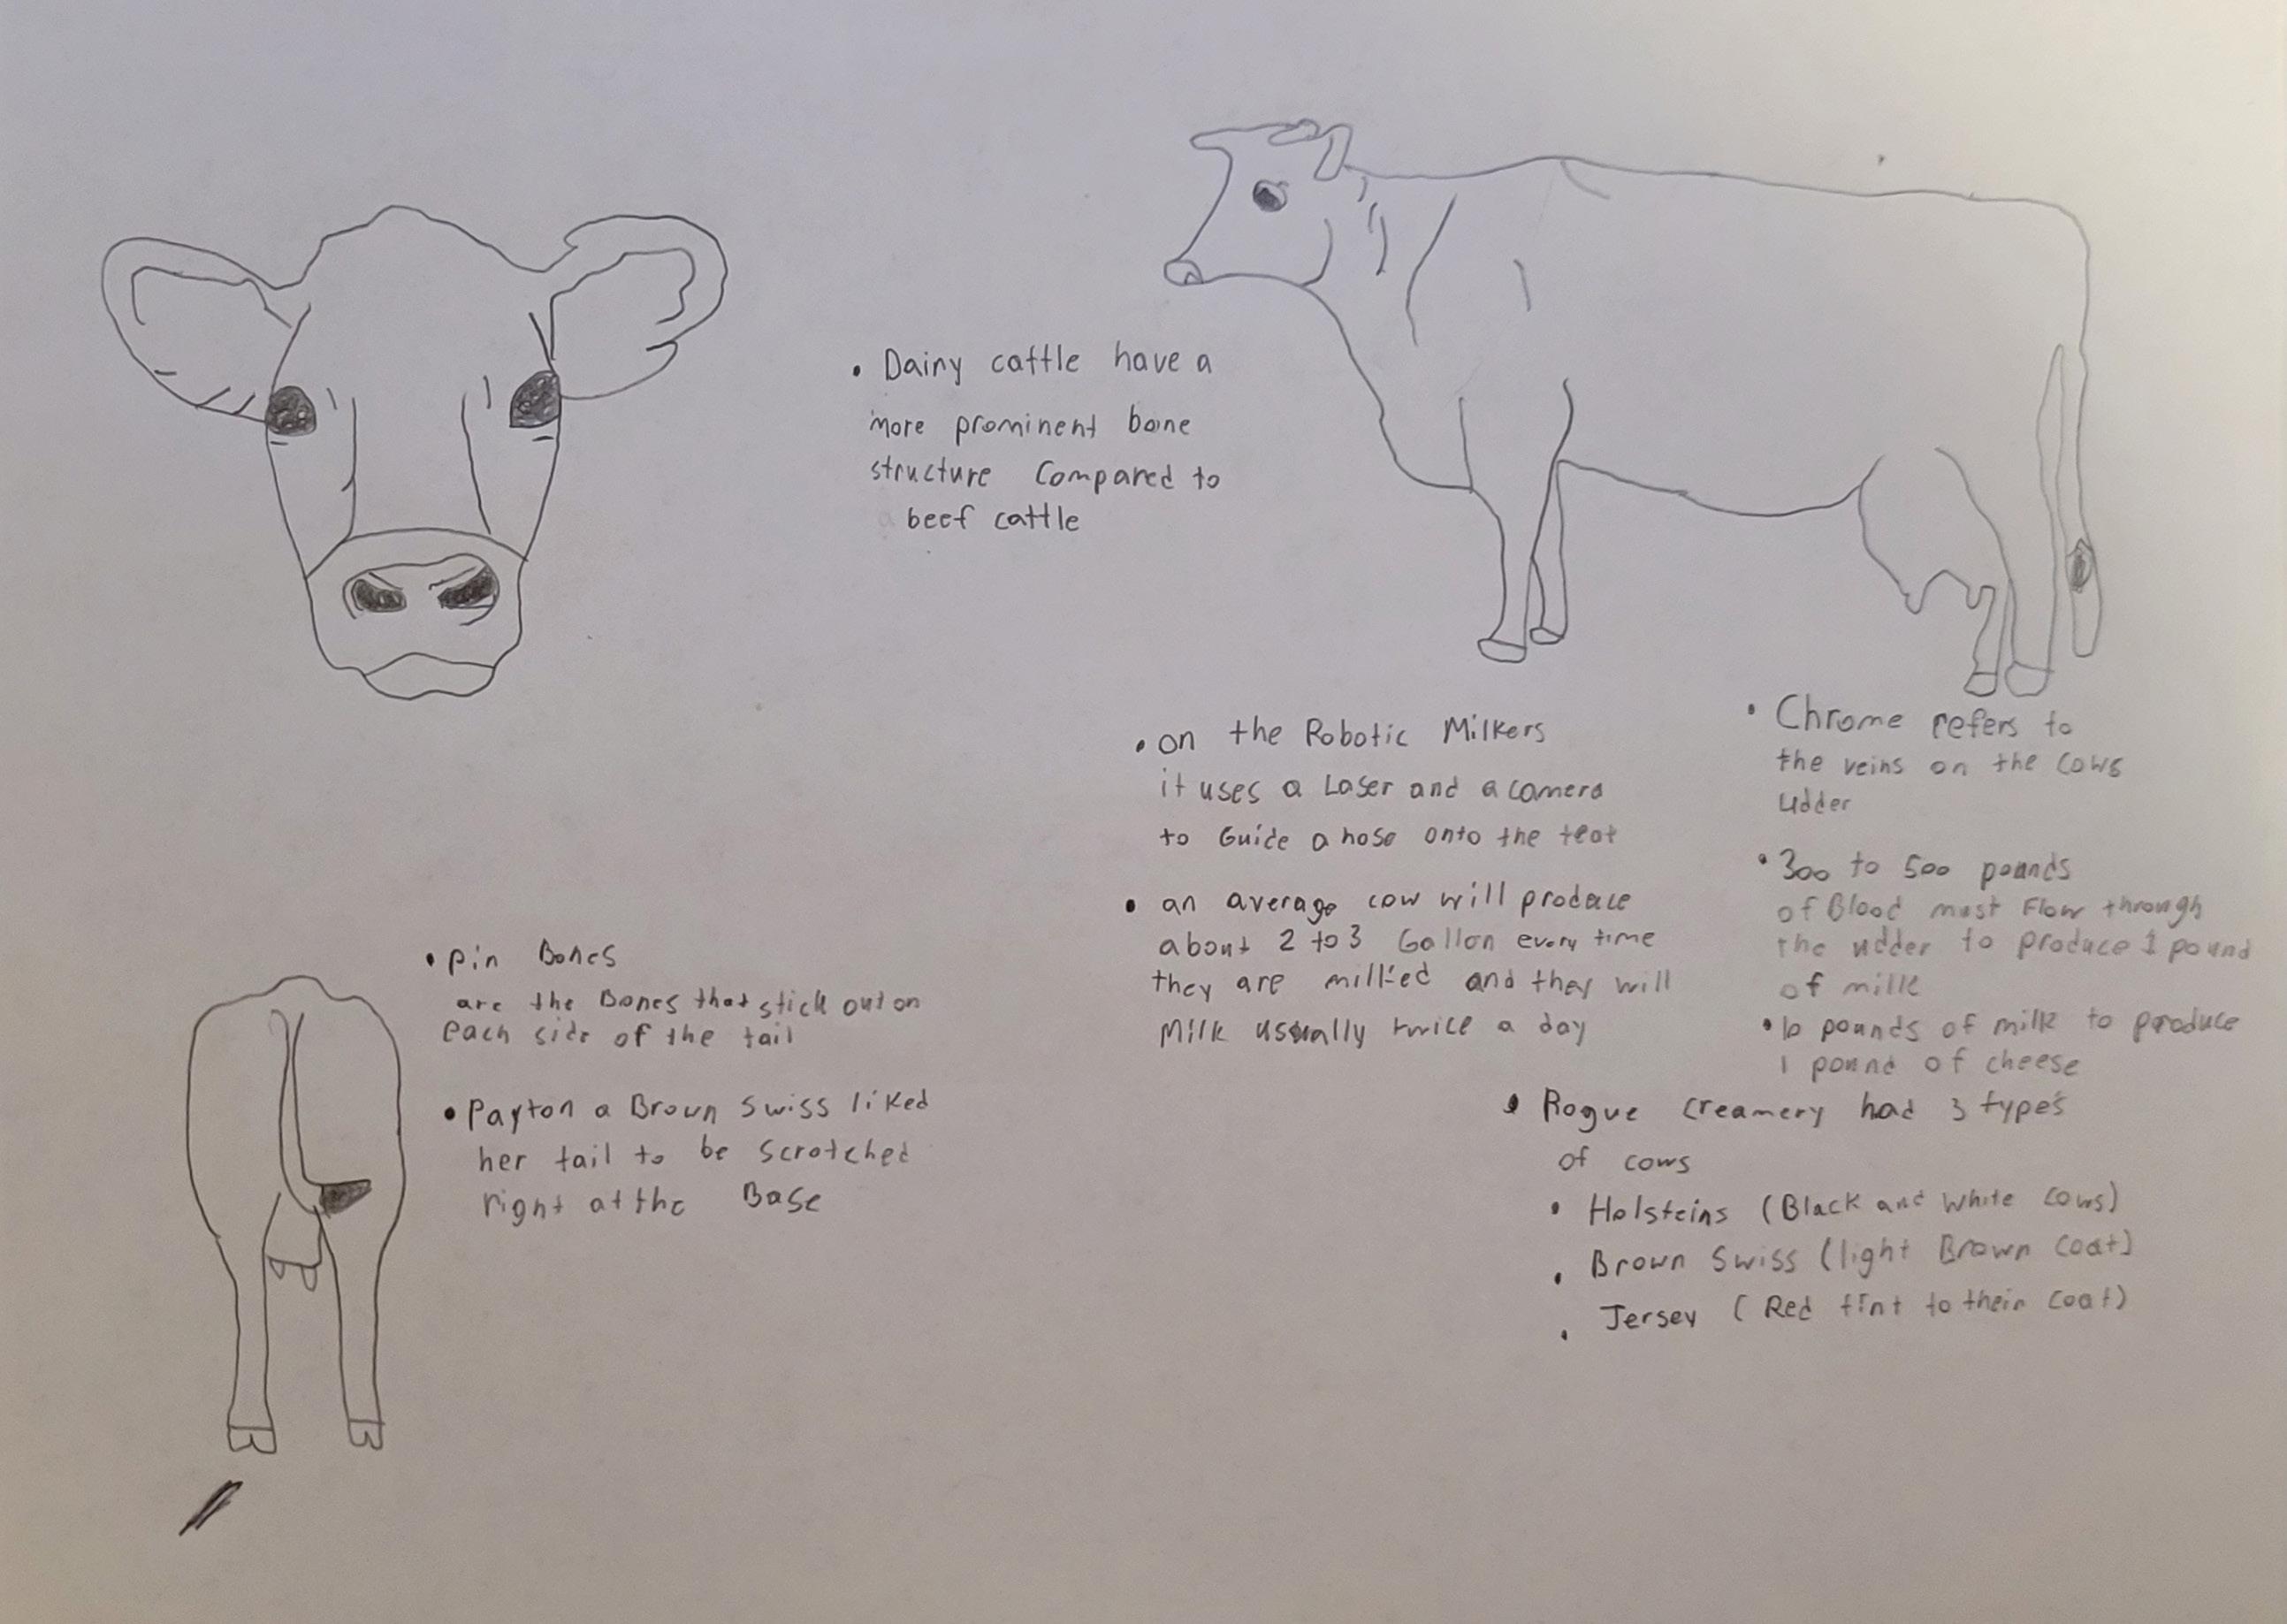 • Dairy cattle have a
more prominent bone
structure Compared to
beef cattle
• on the Robotic Milkers
it uses a Laser and a camera
to Guide a hose onto the teat
• an average cow will produce
about 2 to 3 Gallon every time
they are milked and they will
Milk usually twice a day
• Chrome refers to
the veins on the cows
udder
• 300 to 500 pounds
of Blood must Flow through
the udder to produce 1 pound
of milk
• 10 pounds of milk to produce
1 pound of cheese
• Rogue Creamery had 3 types
of cows
• Holsteins (Black and White cows)
• Brown Swiss (light Brown coat)
• Jersey (Red tint to their coat)
• pin Bones
are the Bones that stick out on
each side of the tail
• Payton a Brown Swiss liked
her tail to be scratched
right at the Base